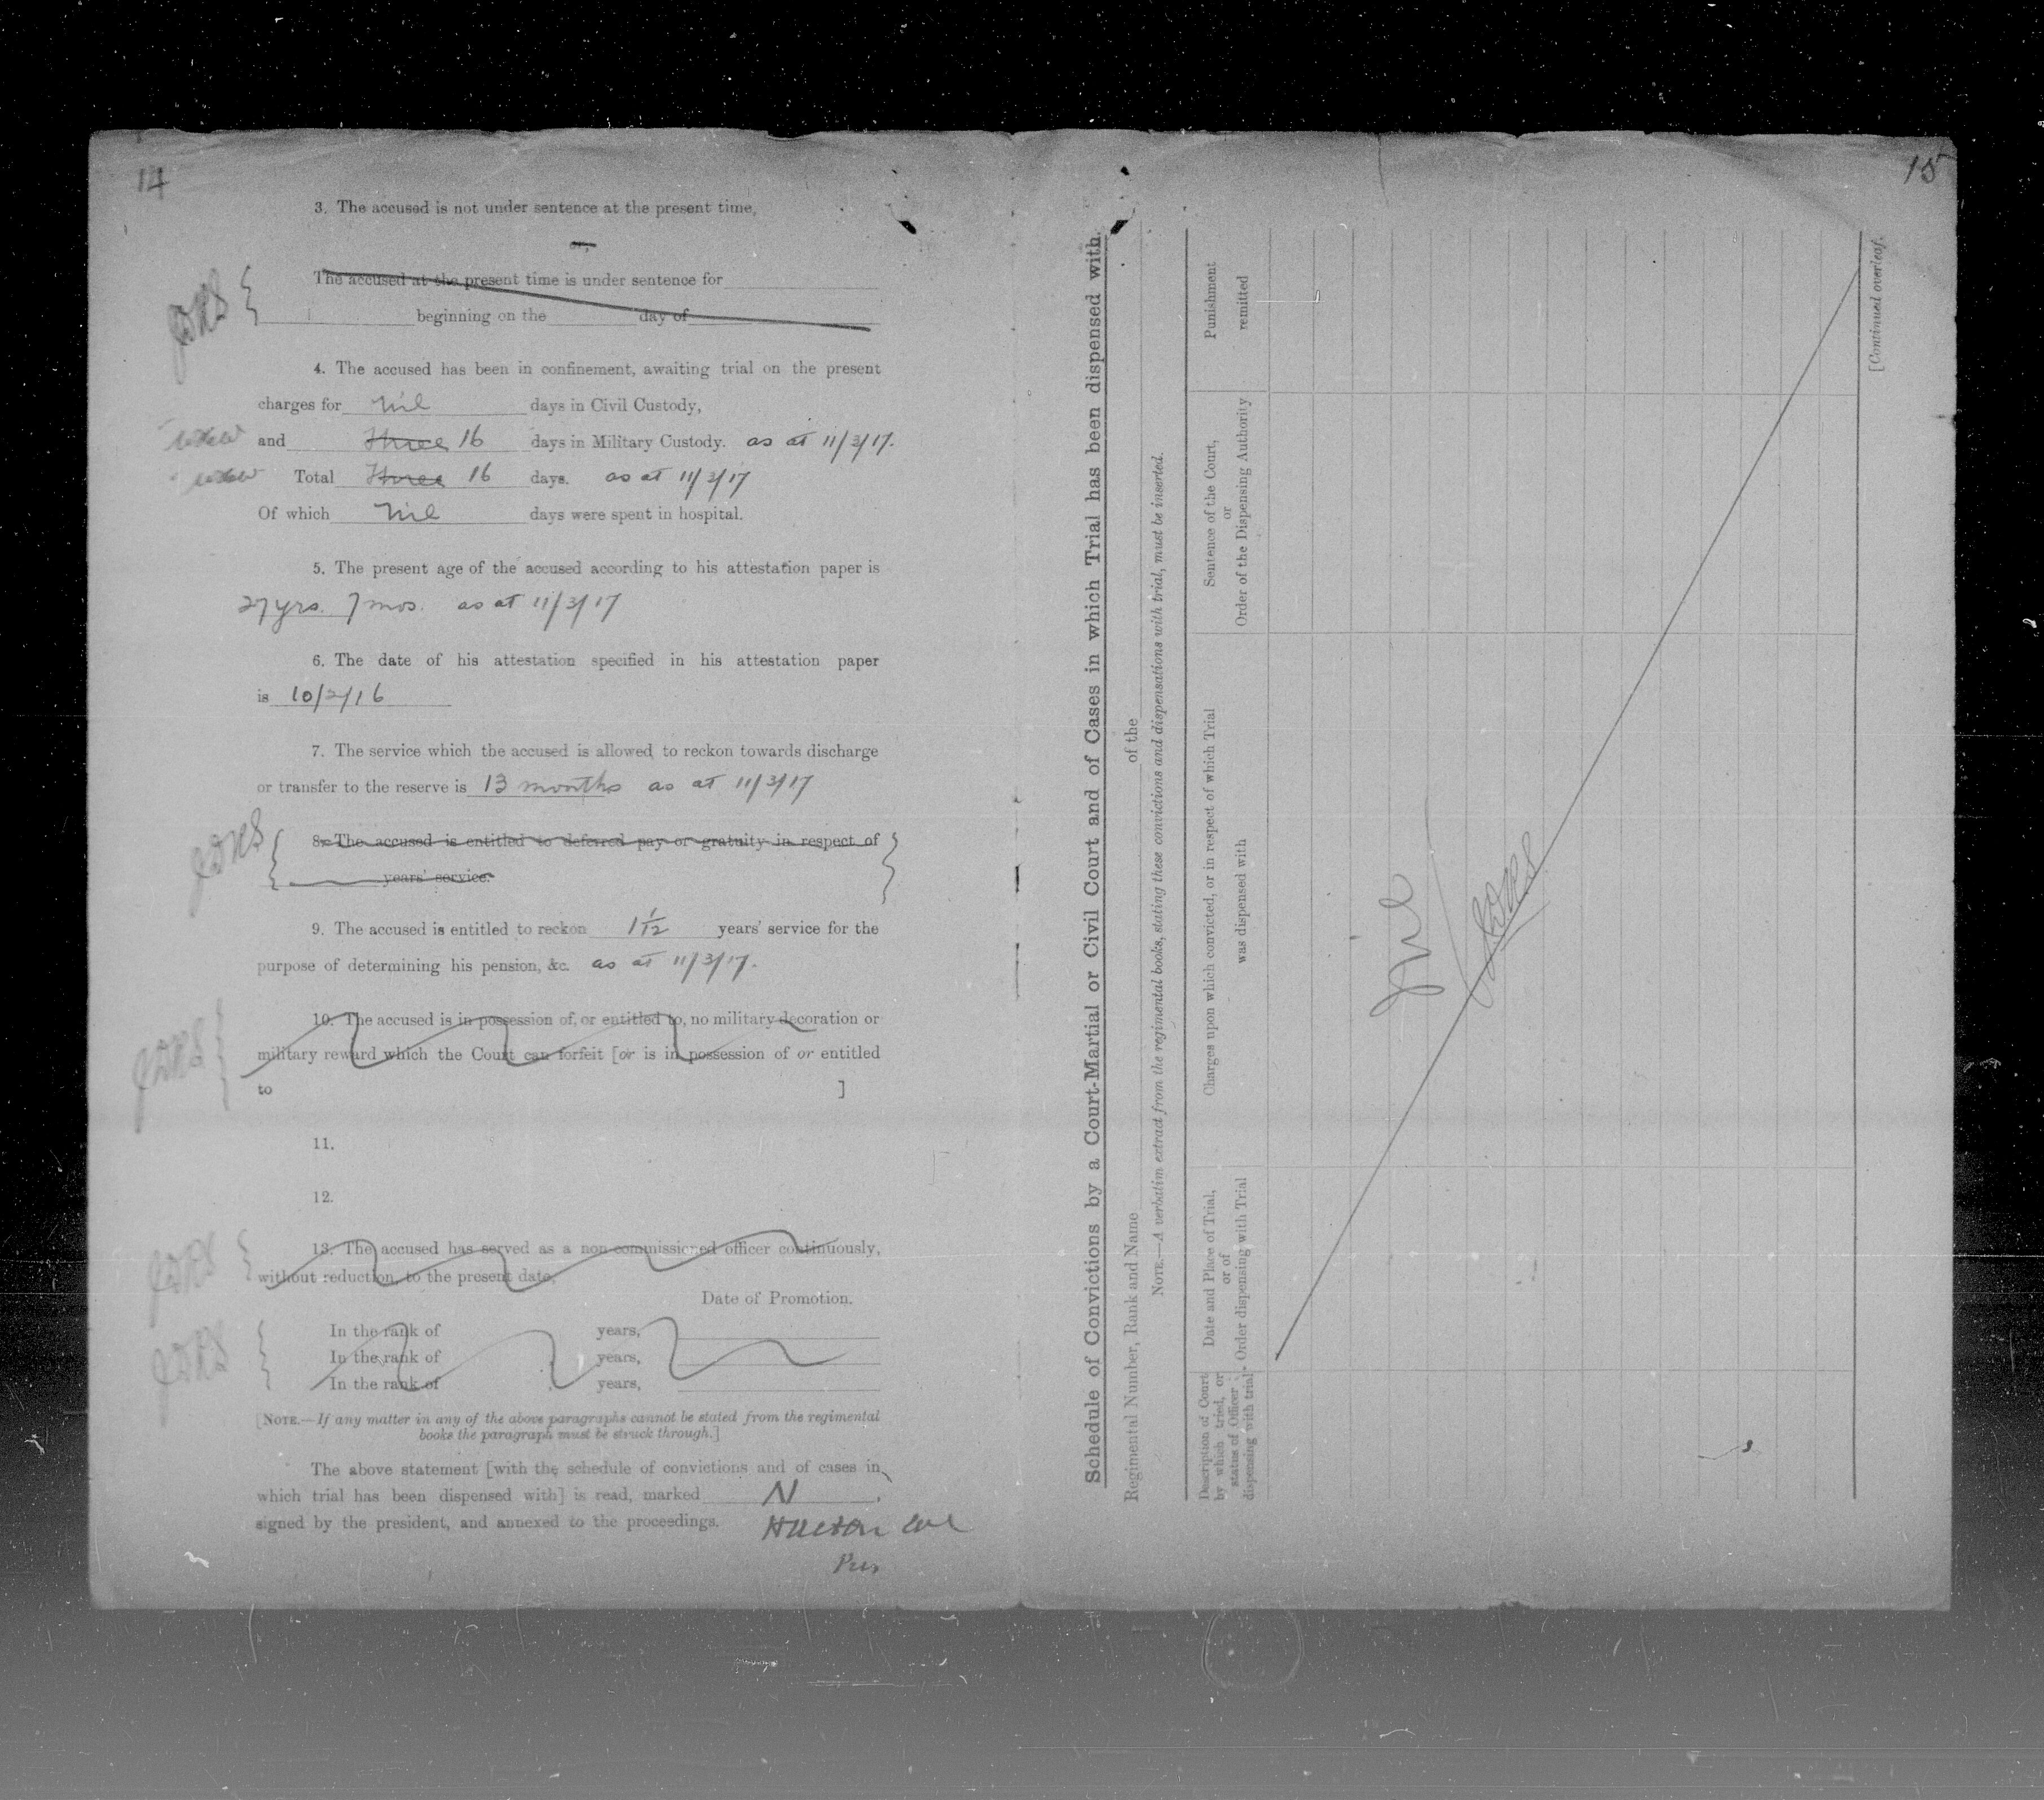 14
3. The accused is not under sentence at the present time,
or,
The accused at the present time is under sentence for
beginning on the day of
4. The accused has been in confinement, awaiting trial on the present
charges for nil days in Civil Custody,
and Three 16 days in Military Custody. as at 11/3/17.
Total Three 16 days. as at 11/3/17
Of which nil days were spent in hospital.
5. The present age of the accused according to his attestation paper is
27 yrs. 7 mos. as at 11/3/17
6. The date of his attestation specified in his attestation paper
is 10/2/16
7. The service which the accused is allowed to reckon towards discharge
or transfer to the reserve is 13 months as at 11/3/17
8. The accused is entitled to deferred pay or gratuity in respect of
years' service.
9. The accused is entitled to reckon 1 1/12 years' service for the
purpose of determining his pension, &c. as at 11/3/17.
10. The accused is in possession of, or entitled to, no military decoration or
military reward which the Court can forfeit [or is in possession of or entitled
to ]
11.
12.
13. The accused has served as a non-commissioned officer continuously,
without reduction, to the present date,
Date of Promotion.
In the rank of years,
In the rank of years,
In the rank of years,
[NOTE.—If any matter in any of the above paragraphs cannot be stated from the regimental
books the paragraph must be struck through.]
The above statement [with the schedule of convictions and of cases in
which trial has been dispensed with] is read, marked N,
signed by the president, and annexed to the proceedings.
Pres
15
Schedule of Convictions by a Court-Martial or Civil Court and of Cases in which Trial has been dispensed with.
Regimental Number, Rank and Name of the
NOTE.—A verbatim extract from the regimental books, stating these convictions and dispensations with trial, must be inserted.
Description of Court
by which tried, or
status of Officer
dispensing with trial
Date and Place of Trial,
or of
Order dispensing with Trial
Charges upon which convicted, or in respect of which Trial
was dispensed with
Sentence of the Court,
or
Order of the Dispensing Authority
Punishment
remitted
nil
[Continued overleaf.